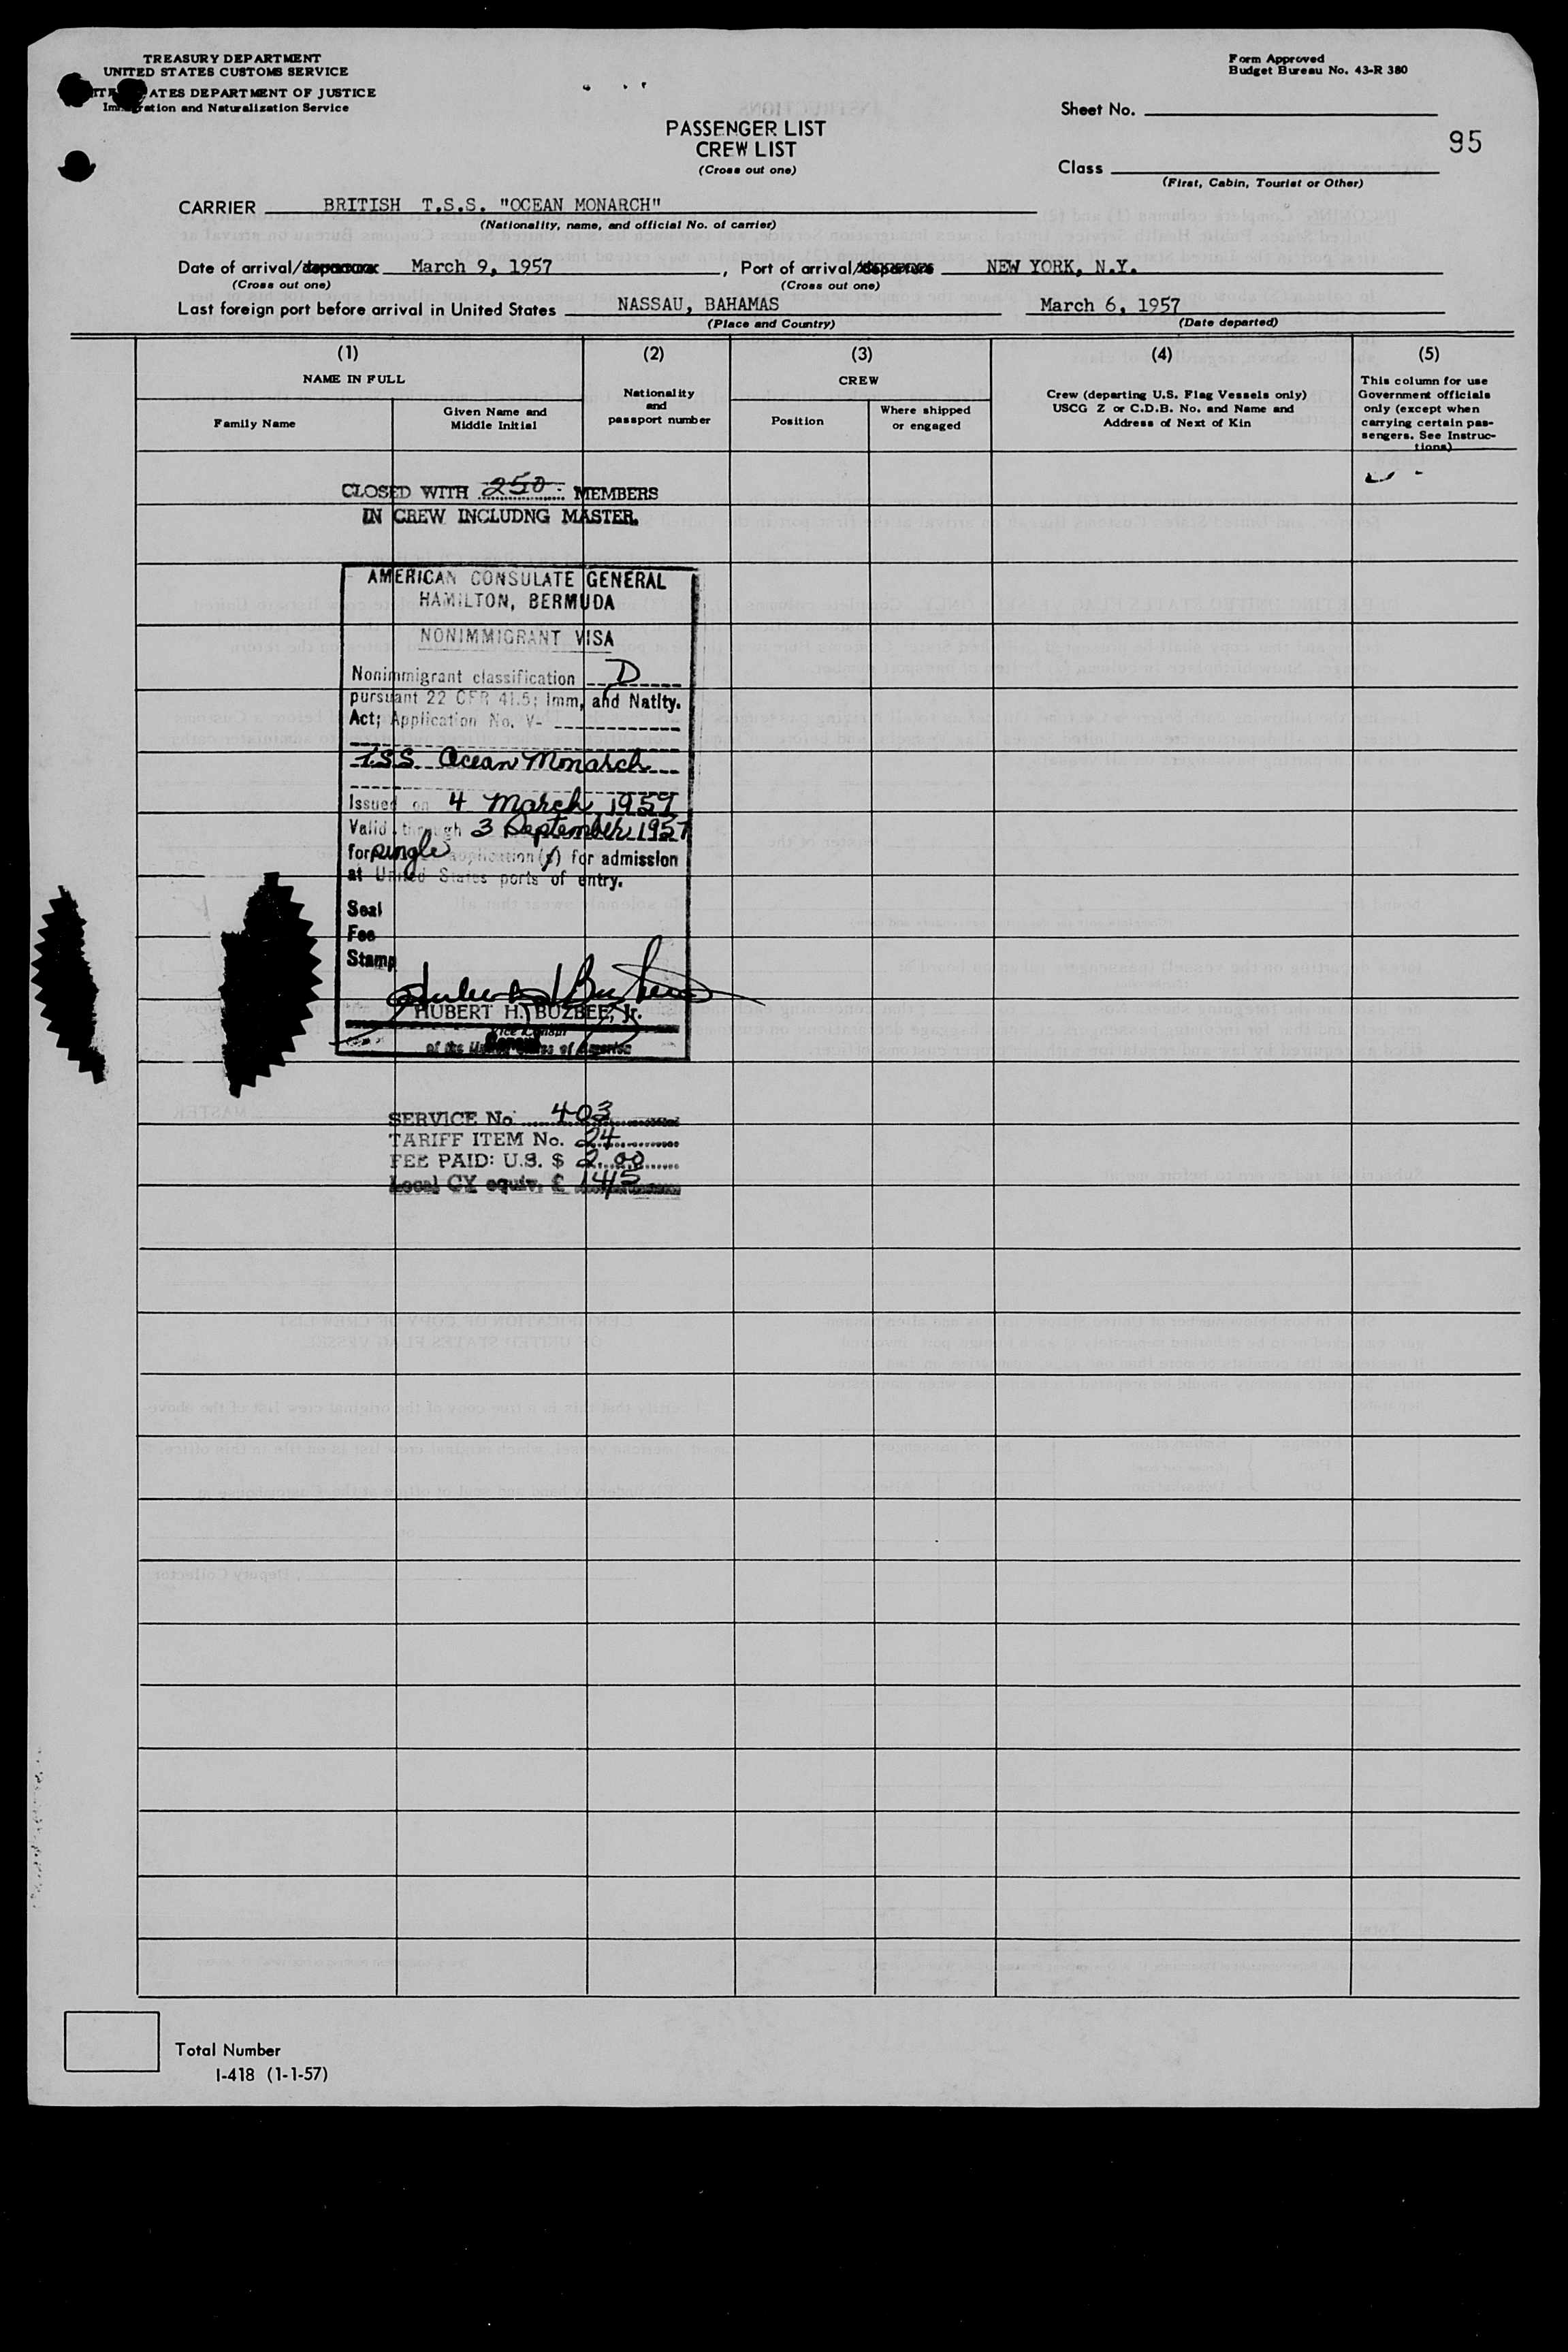 TREASURY DEPARTMENT
UNITED STATES CUSTOMS SERVICE
ATES DEPARTMENT OF JUSTICE
Immigration and Naturalization Service
Form Approved
Budget Bureau No. 43-R 380
Sheet No.
95
PASSENGER LIST
CREW LIST
(Cross out one)
Class
(First, Cabin, Tourist or Other)
CARRIER BRITISH T.S.S. "OCEAN MONARCH"
(Nationality, name, and official No. of carrier)
Date of arrival/ March 9, 1957, Port of arrival/ NEW YORK, N.Y.
(Cross out one) (Cross out one)
Last foreign port before arrival in United States NASSAU, BAHAMAS March 6, 1957
(Place and Country) (Date departed)
(1) (2) (3) (4) (5)
NAME IN FULL
Family Name
Given Name and
Middle Initial
Nationality
and
passport number
CREW
Position
Where shipped
or engaged
Crew (departing U.S. Flag Vessels only)
USCG Z or C.D.B. No. and Name and
Address of Next of Kin
This column for use
Government officials
only (except when
carrying certain pas-
sengers. See Instruc-
tions)
CLOSED WITH 250 MEMBERS
IN CREW INCLUDNG MASTER.
AMERICAN CONSULATE GENERAL
HAMILTON, BERMUDA
NONIMMIGRANT VISA
Nonimmigrant classification D
pursuant 22 CFR 41.5; Imm, and Natlty.
Act; Application No. V-
T.S.S. Ocean Monarch
Issued on 4 March 1957
Valid through 3 September 1957
for single application(s) for admission
at United States ports of entry.
Seal
Fee
Stamp
HUBERT H. BUZBEE, Jr.
Vice Consul
of the United States of America
SERVICE No. 403
TARIFF ITEM No. 24
FEE PAID: U.S. $ 2.00
Local CY equiv. £ 14/5
Total Number
I-418 (1-1-57)